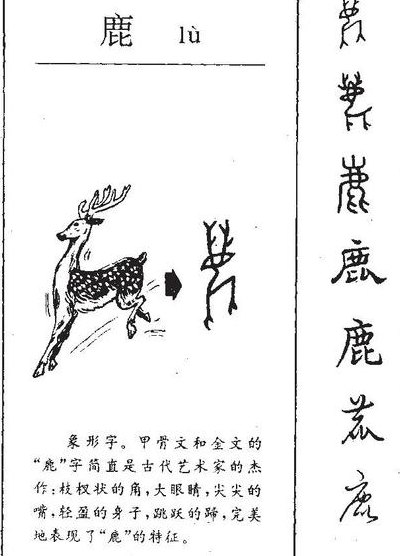 鹿 lù
象形字。甲骨文和金文的
“鹿”字简直是古代艺术家的杰
作：枝杈状的角，大眼睛，尖尖的
嘴，轻盈的身子，跳跃的蹄，完美
地表现了“鹿”的特征。
鹿
鹿
鹿
鹿
鹿
鹿
鹿
鹿